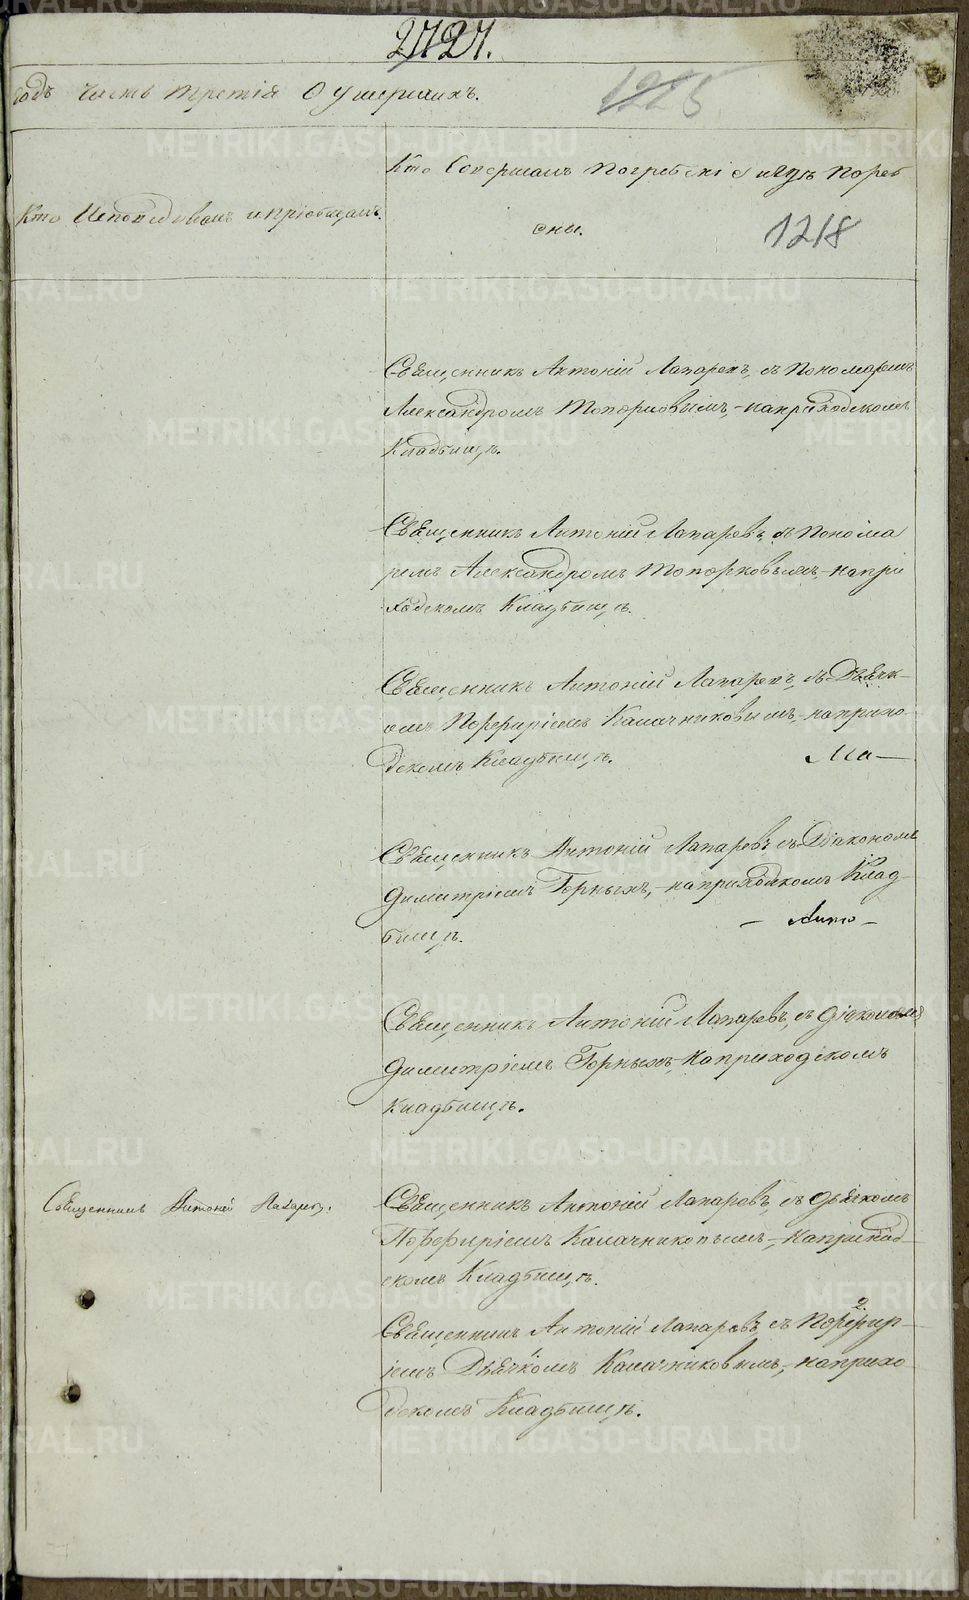 2727.
годъ Часть третія О умершихъ.
1215
Кто Исповѣдывалъ и Пріобщалъ.
Кто Совершалъ Погребеніе и гдѣ Погреб
ены.
1218
Священникъ Антоній Лазаревъ, съ Пономаремъ
Александромъ Топорковымъ, на приходскомъ
Кладбищѣ.
Священникъ Антоній Лазаревъ, съ Понома
ремъ Александромъ Топорковымъ, на при
ходскомъ Кладбищѣ.
Священникъ Антоній Лазаревъ, съ Дьячк-
омъ Порфиріемъ Калачниковымъ, на прихо
дскомъ Кладбищѣ.
Ма—
Священникъ Антоній Лазаревъ съ Діакономъ
Димитріемъ Горныхъ, на приходскомъ Клад
бищѣ.
— Анто —
Священникъ Антоній Лазаревъ, съ діакономъ
Димитріемъ Горныхъ, на приходскомъ
Кладбищѣ.
Священникъ Антоній Лазаревъ.
Священникъ Антоній Лазаревъ, съ дьячкомъ
Порфиріемъ Калачниковымъ, на приход-
скомъ Кладбищѣ.
Священникъ Антоній Лазаревъ, съ Порфир-
іемъ Дьячкомъ Калачниковымъ, на прихо
дскомъ Кладбищѣ.
METRIKI.GASO-URAL.RU